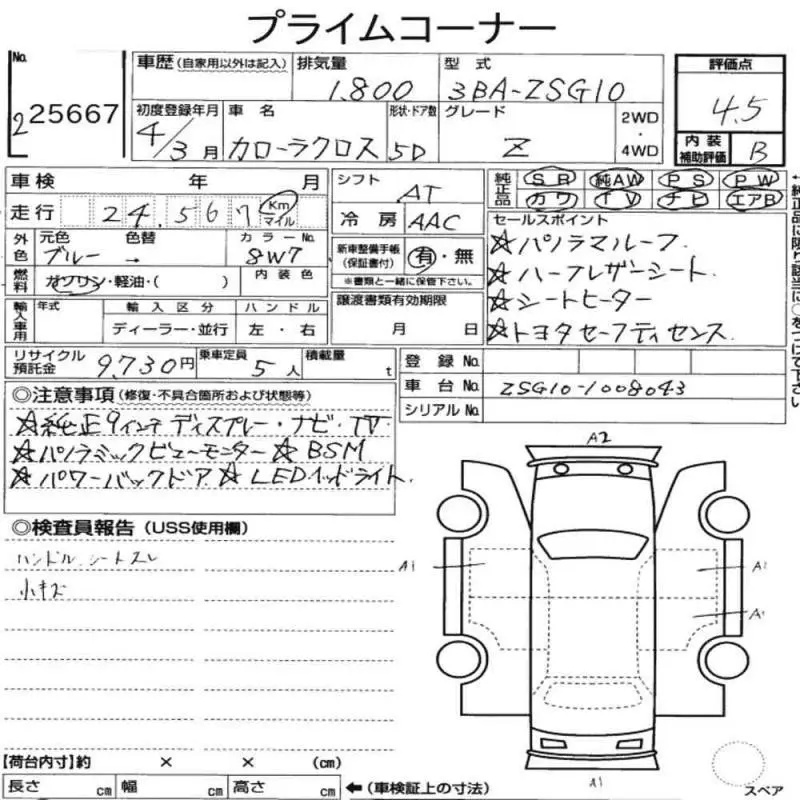 プライムコーナー
No. 2 25667
車歴(自家用以外は記入) 排気量 1.800 型式 3BA-ZSG10 評価点 4.5
初度登録年月 4/3月 車名 カローラクロス 形状・ドア数 5D グレード Z 2WD・4WD 内装補助評価 B
車検 年 月 シフト AT 純正品 SR 純AW PS PW
走行 24,567 Km マイル 冷房 AAC カワ TV ナビ エアB
外色 元色 ブルー 色替 → カラーNo. 8W7 新車整備手帳(保証書付) 有・無
※書類と一緒に保管下さい。
燃料 ガソリン・軽油・( ) 内装色
セールスポイント
☆パノラマルーフ.
☆ハーフレザーシート
☆シートヒーター
☆トヨタセーフティセンス
輸入車用 年式 輸入区分 ハンドル 譲渡書類有効期限
ディーラー・並行 左・右 月 日
リサイクル預託金 9,730円 乗車定員 5人 積載量 t 登録No.
車台No. ZSG10-1008043
シリアルNo.
◎注意事項(修復・不具合箇所および状態等)
☆純正9インチディスプレー・ナビ・TV
☆パノラミックビューモニター☆BSM
☆パワーバックドア☆LEDヘッドライト
◎検査員報告(USS使用欄)
ハンドル、シートスレ
小キズ
A2
A1 A1
A1
A1
スペア
【荷台内寸】約 × × (cm)
長さ cm 幅 cm 高さ cm ←(車検証上の寸法)